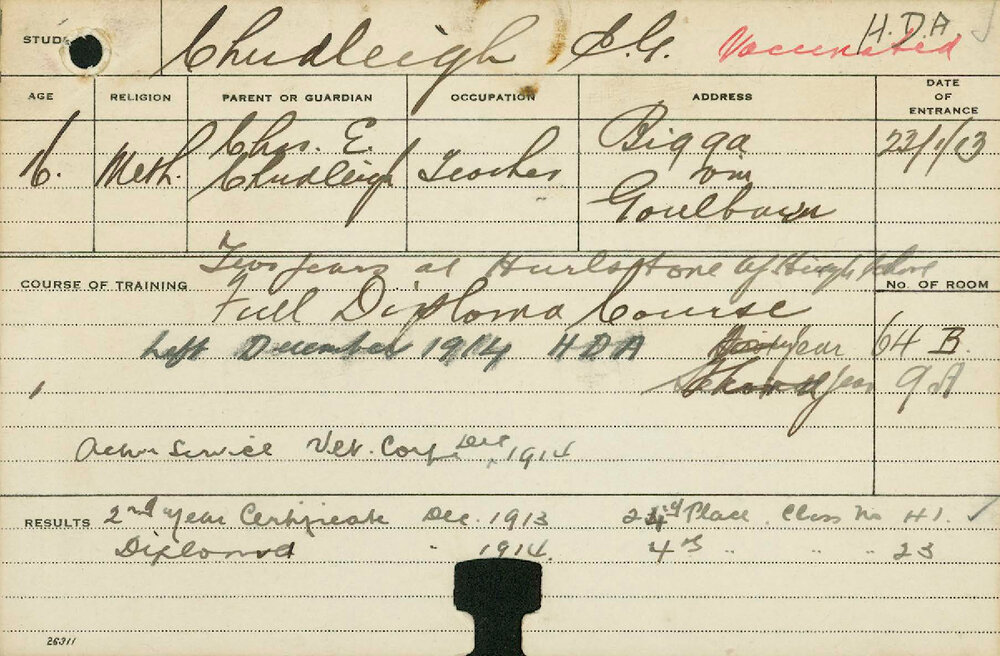 STUD
Chudleigh
Vaccinated
H.D.A.
AGE RELIGION PARENT OR GUARDIAN OCCUPATION ADDRESS DATE OF ENTRANCE
16. Meth. Chas. E. Chudleigh Teacher Bigga via Goulburn 23/1/13
Two years at Hurlstone Ag High School
COURSE OF TRAINING
Full Diploma Course
No. OF ROOM
Left December 1914 HDA
year 64 B.
year 9
Active Service Vet. Corps Dec 1914
RESULTS 2nd Year Certificate Dec. 1913 Place. Class No 41. ✓
Diploma " 1914. 4th " " " 23
26311